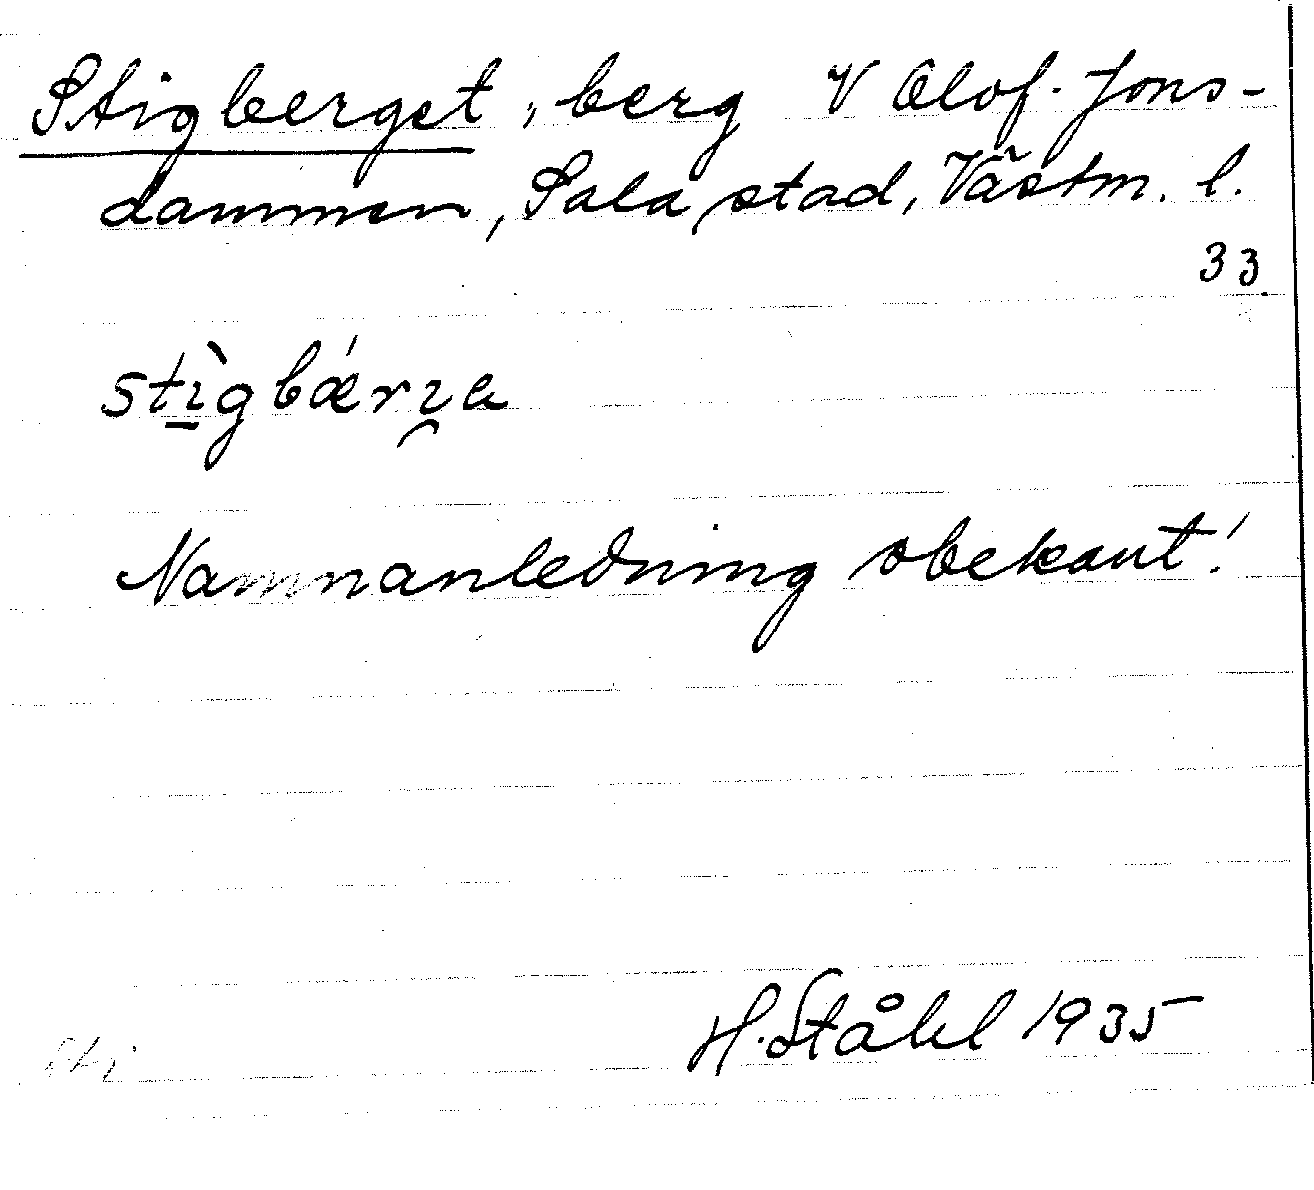 Stigberget, berg V Olof-Jons-
dammen, Sala stad, Västm. l.
33.
stı̀gbǽrı̯a
Namnanledning obekant!
H. Ståhl 1935
Sti